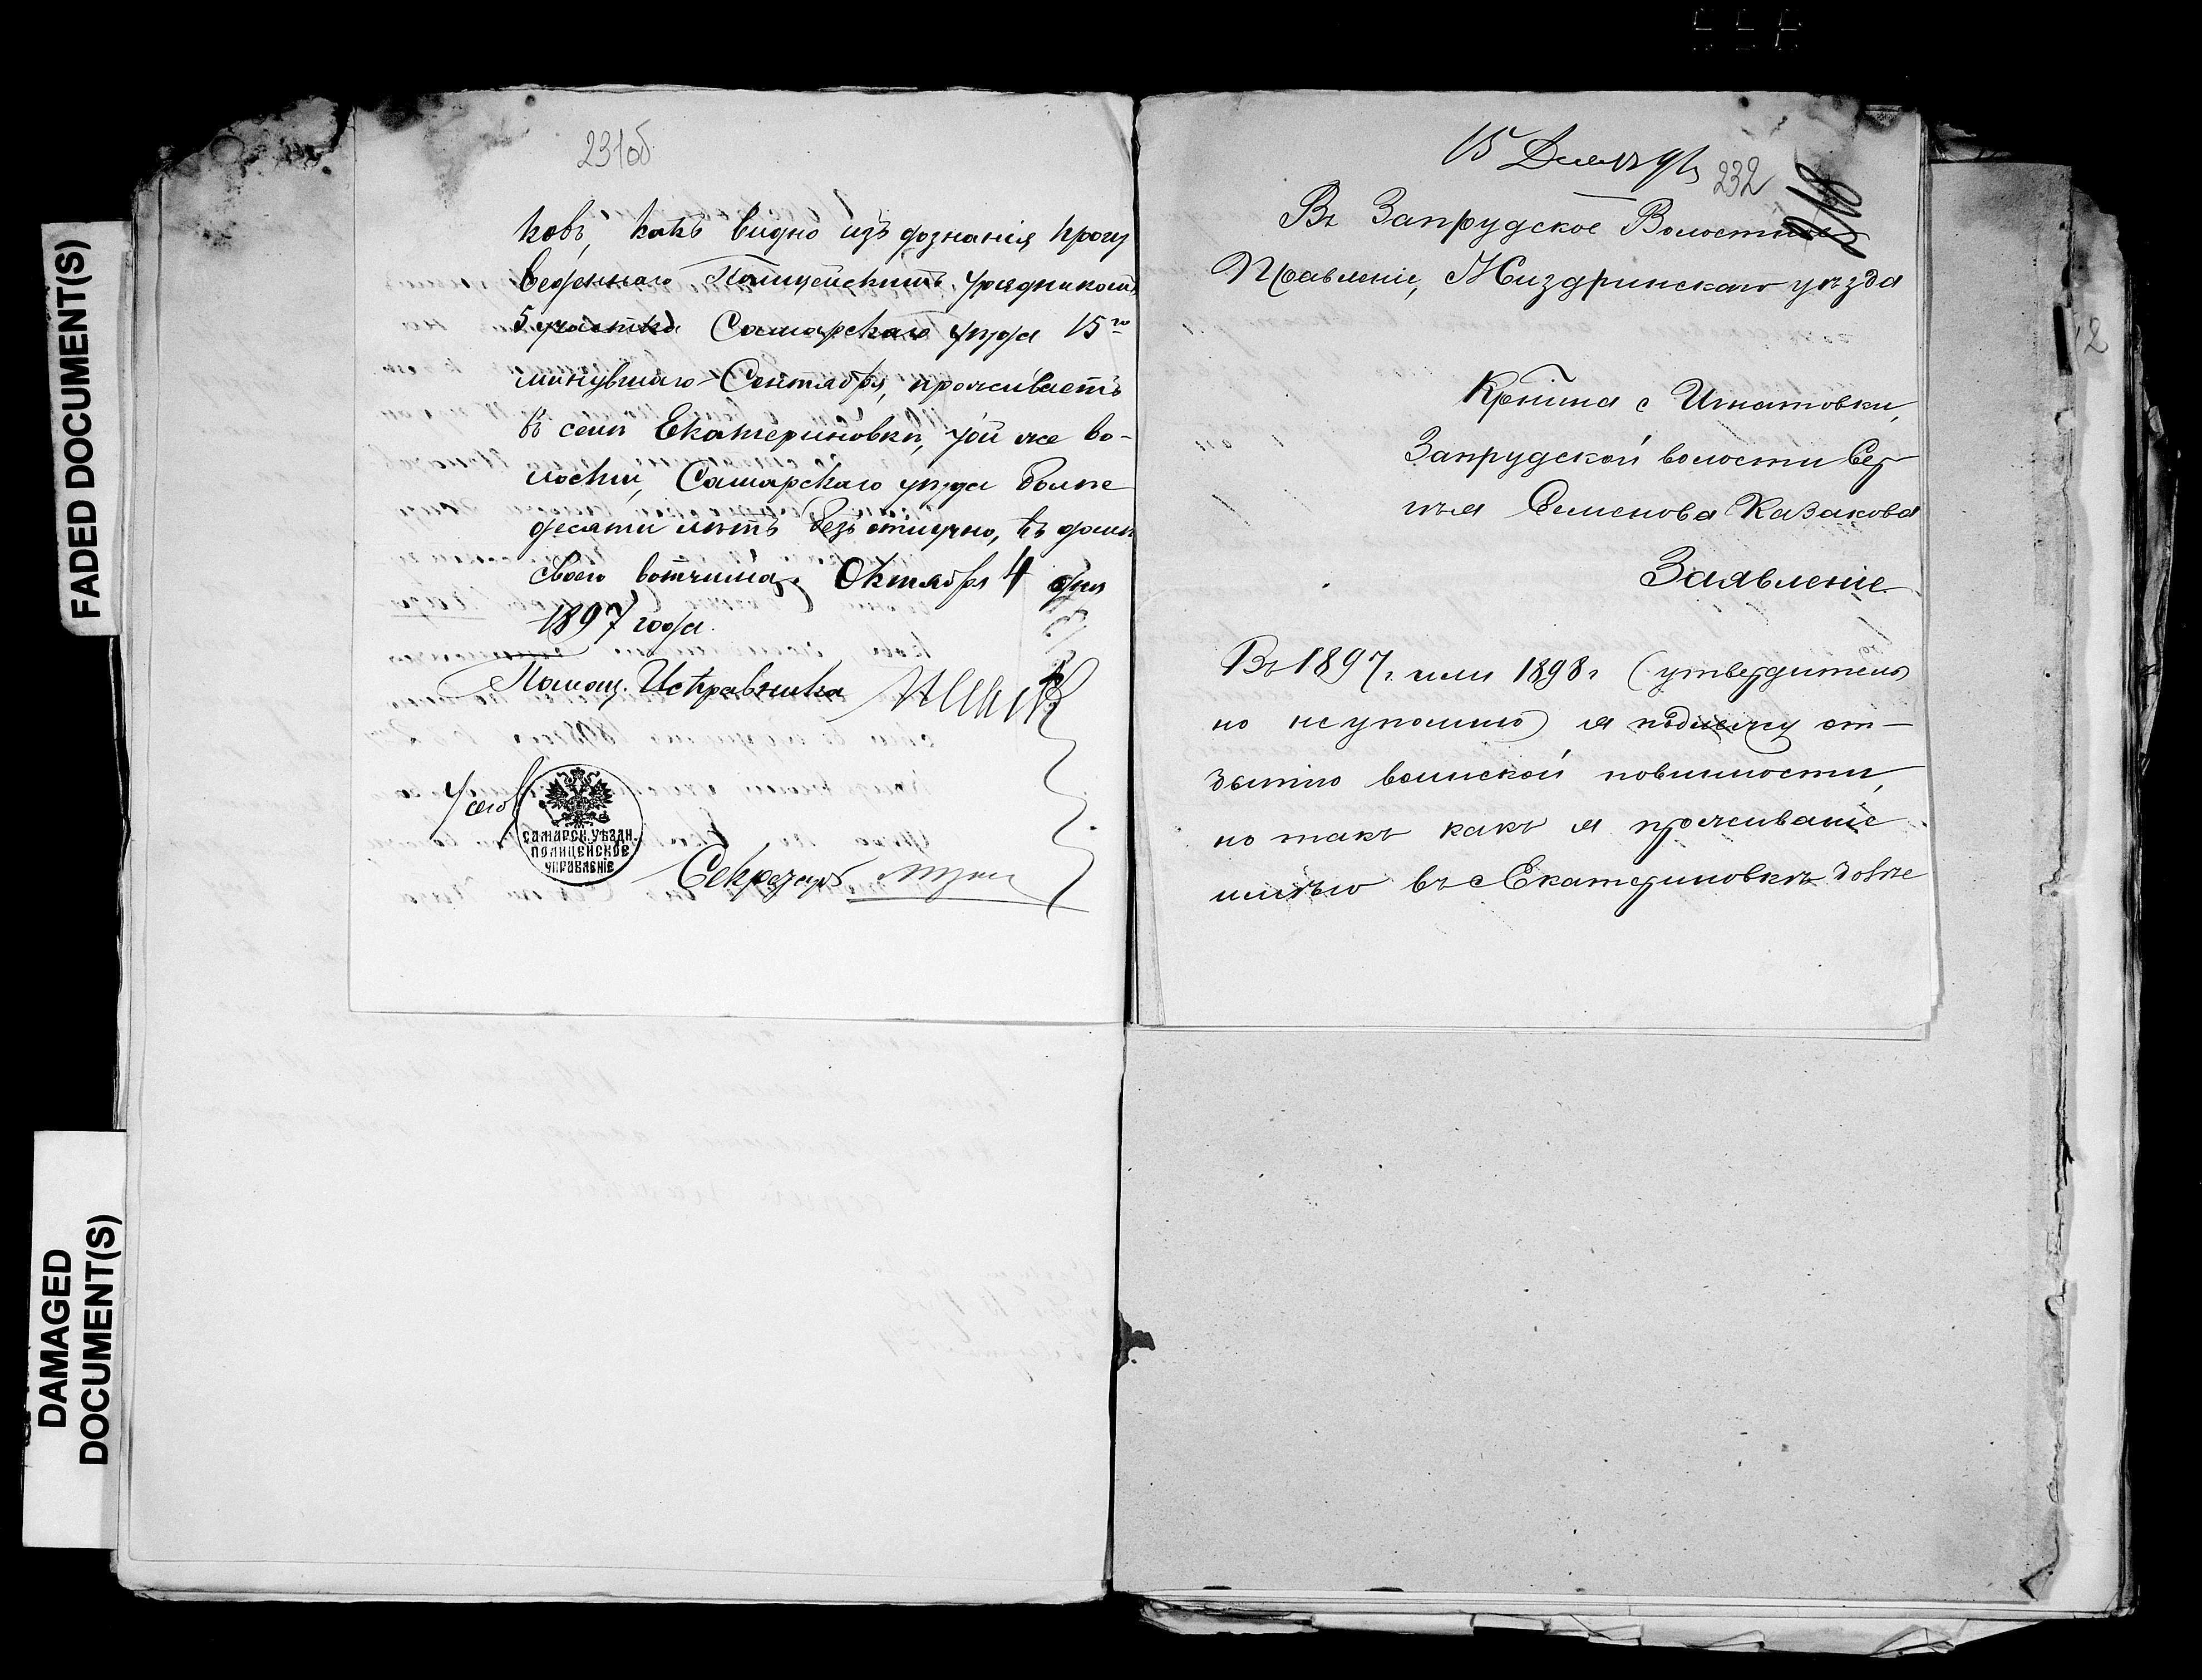 FADED DOCUMENT(S)
DAMAGED
DOCUMENT(S)
231об
ковъ, какъ видно изъ дознанія произ
веденнаго Полицейскимъ Урядникомъ
5 участка Самарскаго уѣзда 15го
минувшаго Сентября, проживаетъ
въ селѣ Екатериновкѣ, той же во-
лости, Самарскаго уѣзда болѣе
десяти лѣтъ безъ отлучно, въ домѣ
своего вотчима. Октября 4 дня
1897 года.
Помощ. Исправника
САМАРСК. УѢЗДН.
ПОЛИЦЕЙСКОЕ
УПРАВЛЕНІЕ
Секретарь
15 Декабря
232
Въ Запрудское Волостное
Правленіе, Жиздринскаго уѣзда
Кр-нина с Игнатовки,
Запрудской волости Сер
гѣя Семенова Казакова
Заявленіе
Въ 1897 г. или 1898 г (утвердитель
но не упомню) я подлежу от-
бытію воинской повинности,
но такъ какъ я проживаніе
имѣю въ с Екатериновкѣ болѣе